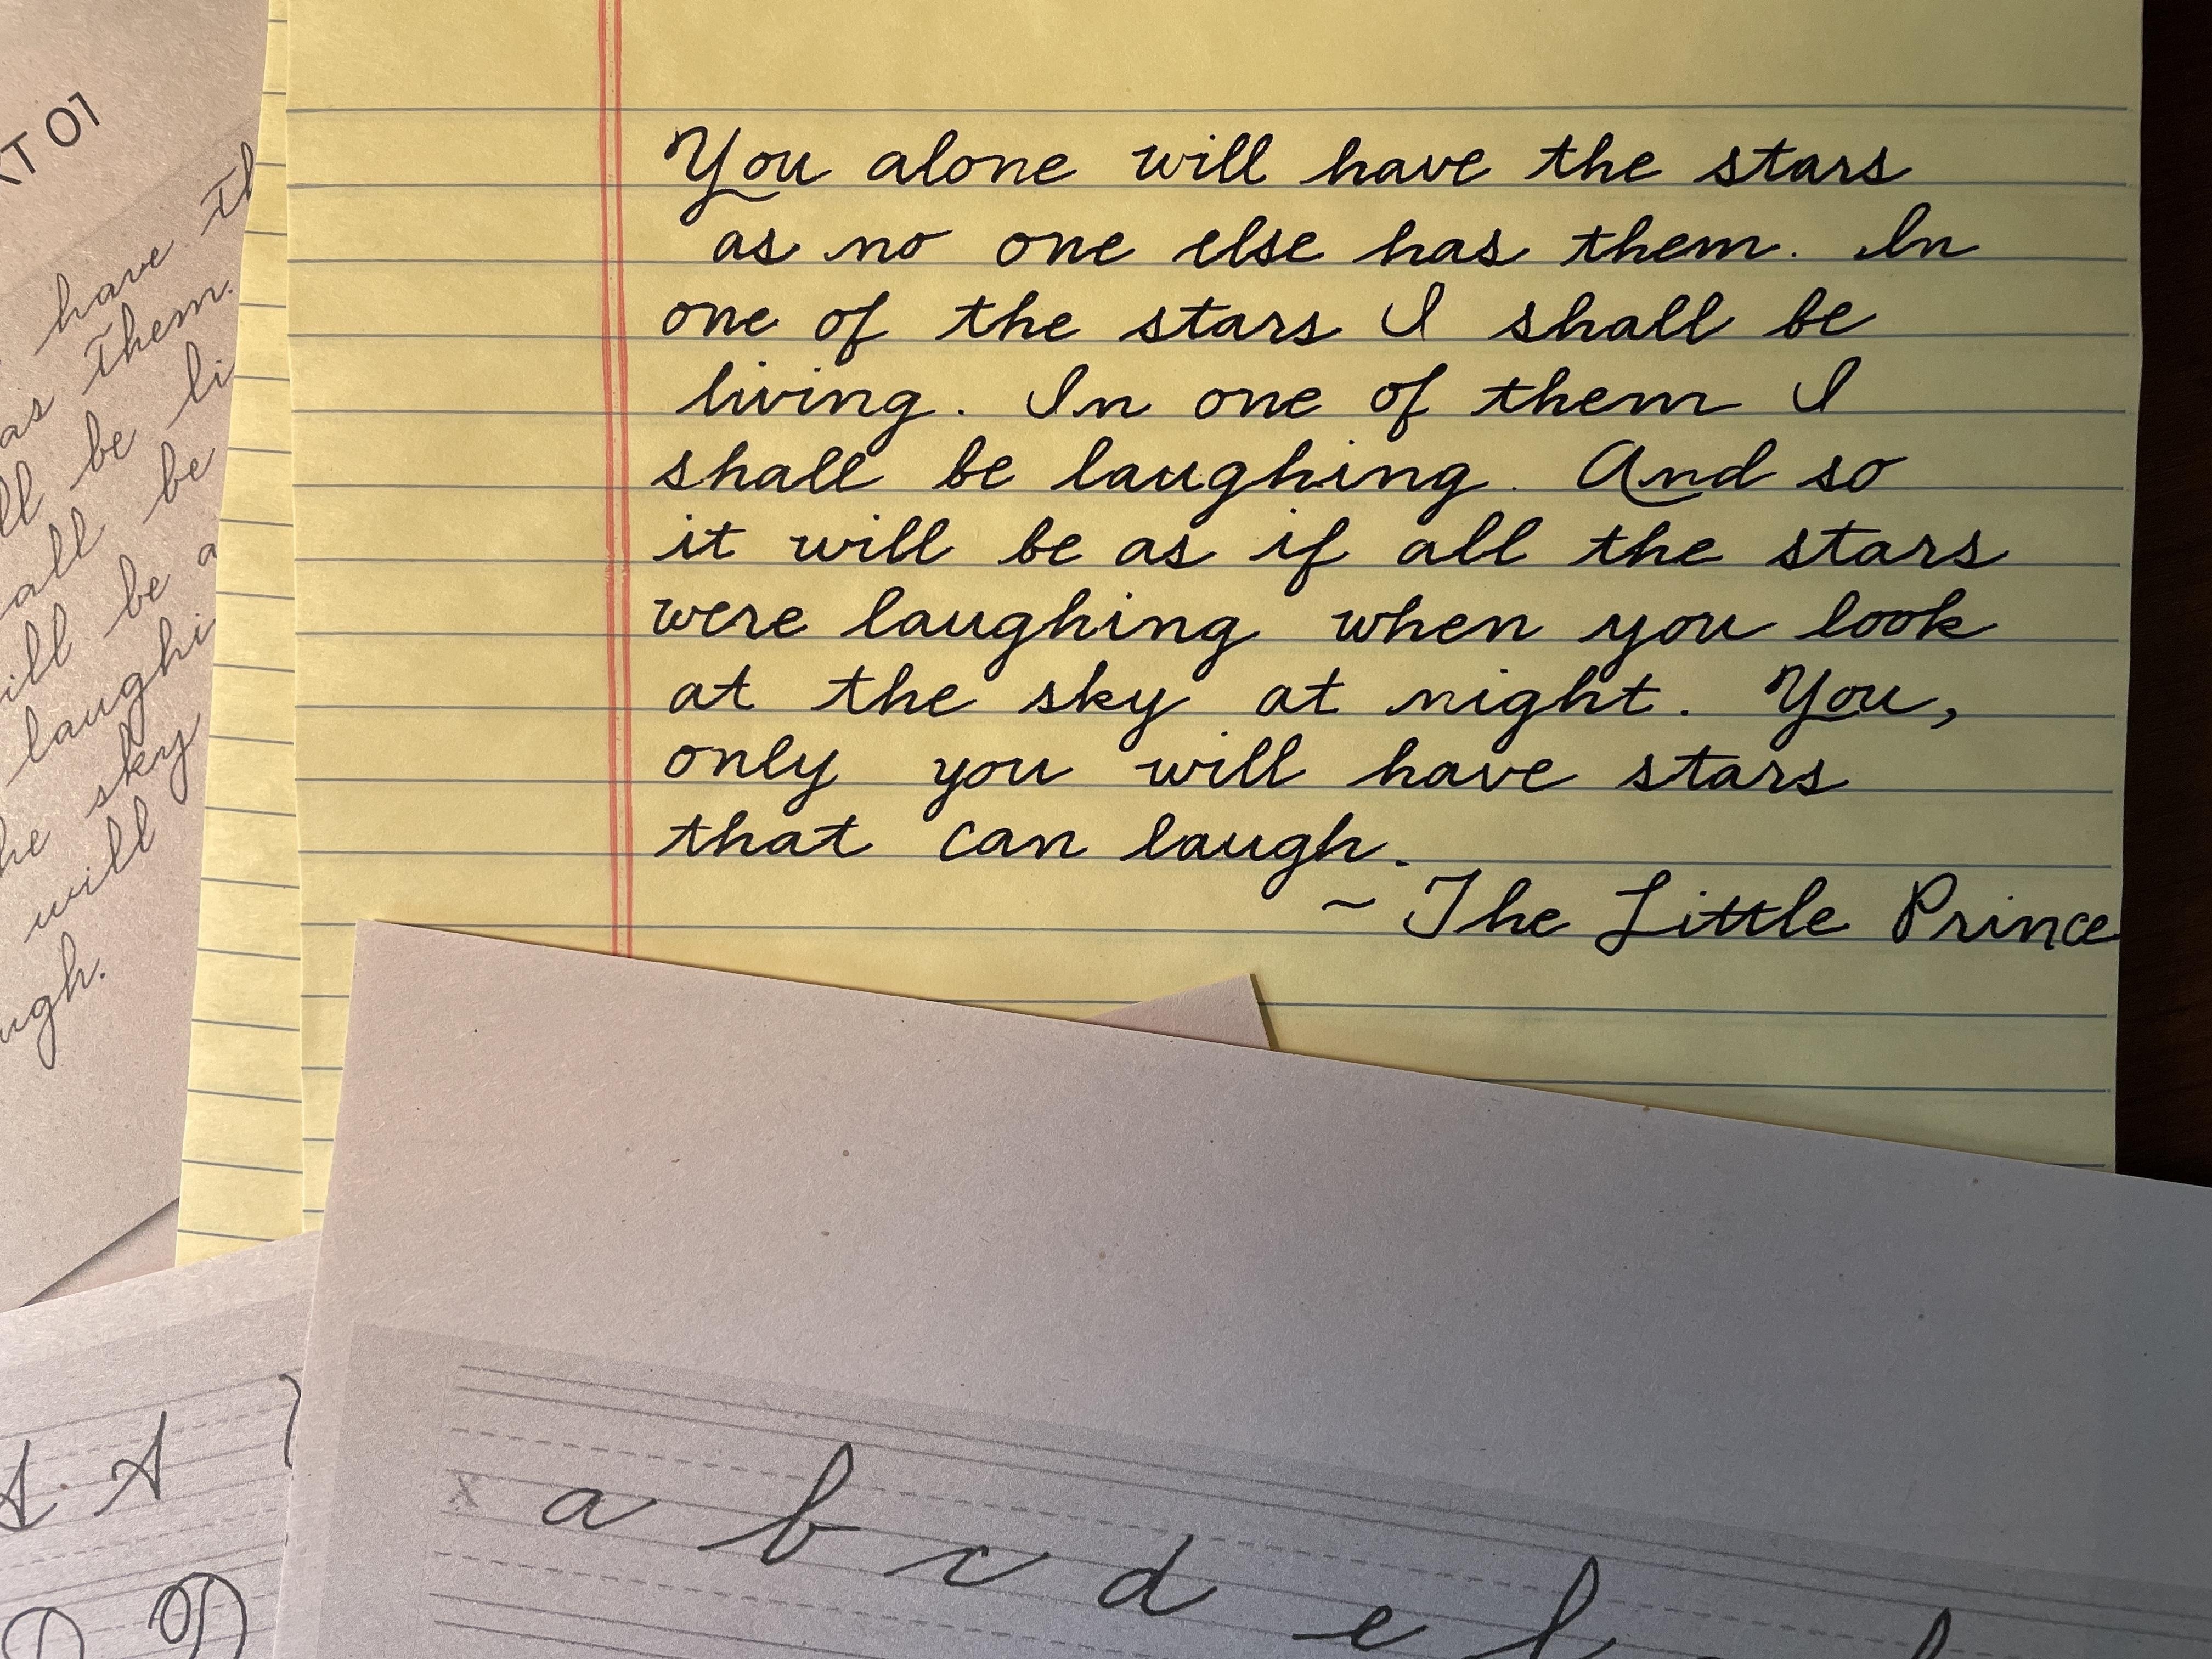 You alone will have the stars
as no one else has them. In
one of the stars I shall be
living. In one of them I
shall be laughing. And so
it will be as if all the stars
were laughing when you look
at the sky at night. You,
only you will have stars
that can laugh.
~ The Little Prince
01
have
them.
be li
be
be a
laughi
sky
will
A A
x a b c d e f